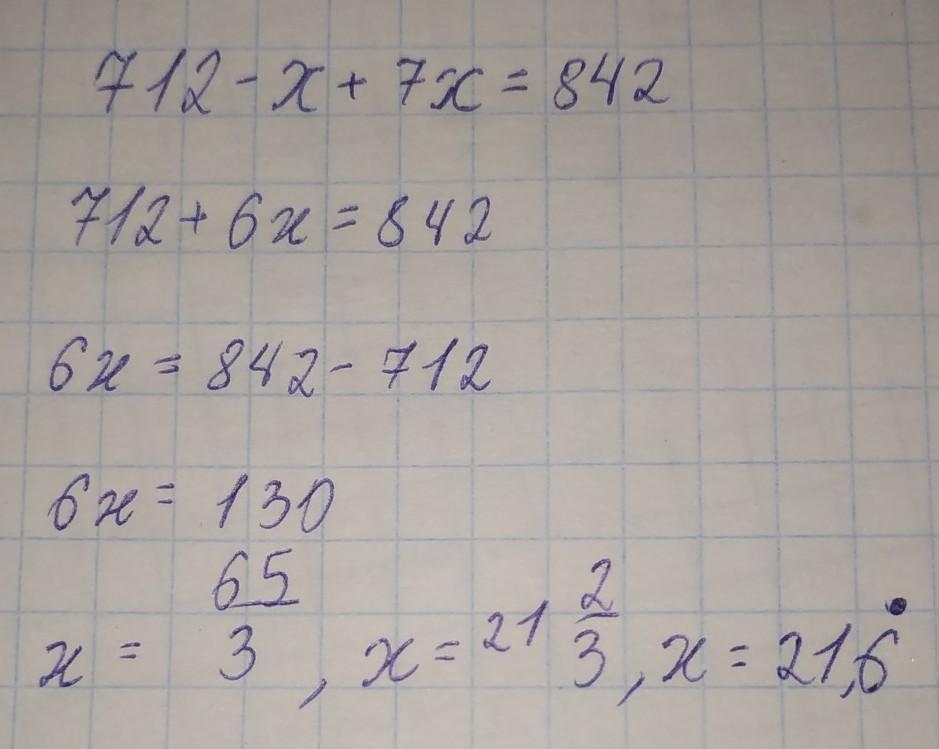 712 - x + 7x = 842
712 + 6x = 842
6x = 842 - 712
6x = 130
x = 65/3, x = 21 2/3, x = 21,6̇